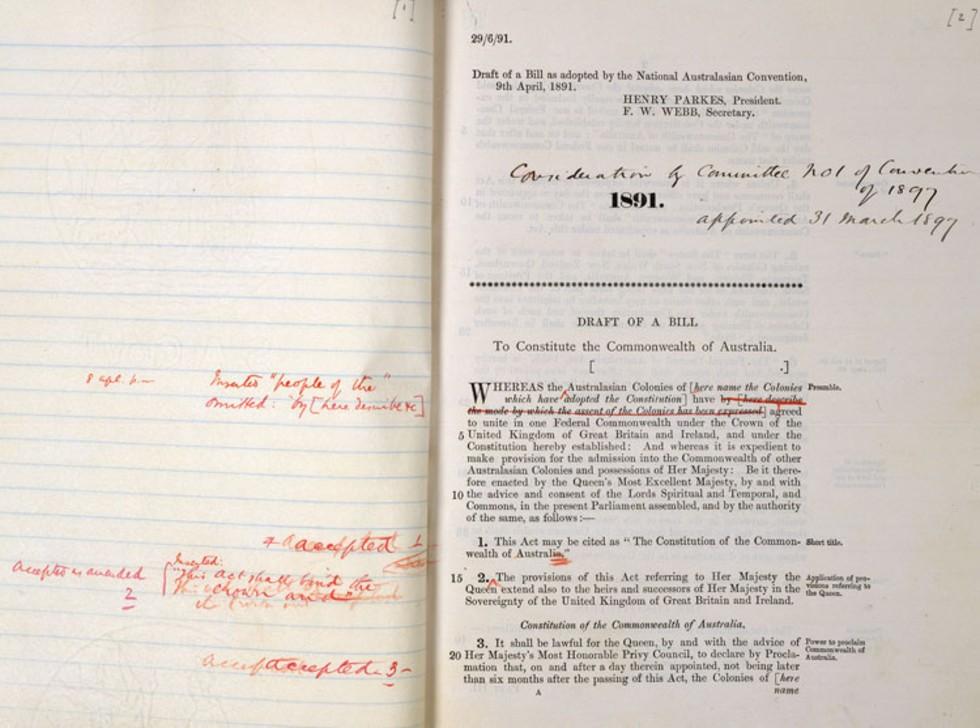 [1]
8 apl. 
Inserted "people of the"
omitted: "by [here describe &c]
accepted 1
Inserted:
accepted as amended
"This Act shall bind the
Crown and"
2
accepted 3
[2]
29/6/91.
Draft of a Bill as adopted by the National Australasian Convention,
9th April, 1891.
HENRY PARKES, President.
F. W. WEBB, Secretary.
Consideration by Committee No1 of Convention
of 1897
1891.
appointed 31 March 1897
DRAFT OF A BILL
To Constitute the Commonwealth of Australia.
[ .]
WHEREAS the Australasian Colonies of [here name the Colonies Preamble.
which have adopted the Constitution] have by [here describe
the mode by which the assent of the Colonies has been expressed] agreed
to unite in one Federal Commonwealth under the Crown of the
5 United Kingdom of Great Britain and Ireland, and under the
Constitution hereby established: And whereas it is expedient to
make provision for the admission into the Commonwealth of other
Australasian Colonies and possessions of Her Majesty: Be it there-
fore enacted by the Queen's Most Excellent Majesty, by and with
10 the advice and consent of the Lords Spiritual and Temporal, and
Commons, in the present Parliament assembled, and by the authority
of the same, as follows:—
1. This Act may be cited as "The Constitution of the Common- Short title.
wealth of Australia."
15 2. The provisions of this Act referring to Her Majesty the Application of pro-
Queen extend also to the heirs and successors of Her Majesty in the visions referring to
Sovereignty of the United Kingdom of Great Britain and Ireland. the Queen.
Constitution of the Commonwealth of Australia.
3. It shall be lawful for the Queen, by and with the advice of Power to proclaim
20 Her Majesty's Most Honorable Privy Council, to declare by Procla- Commonwealth of
mation that, on and after a day therein appointed, not being later Australia.
than six months after the passing of this Act, the Colonies of [here
A name